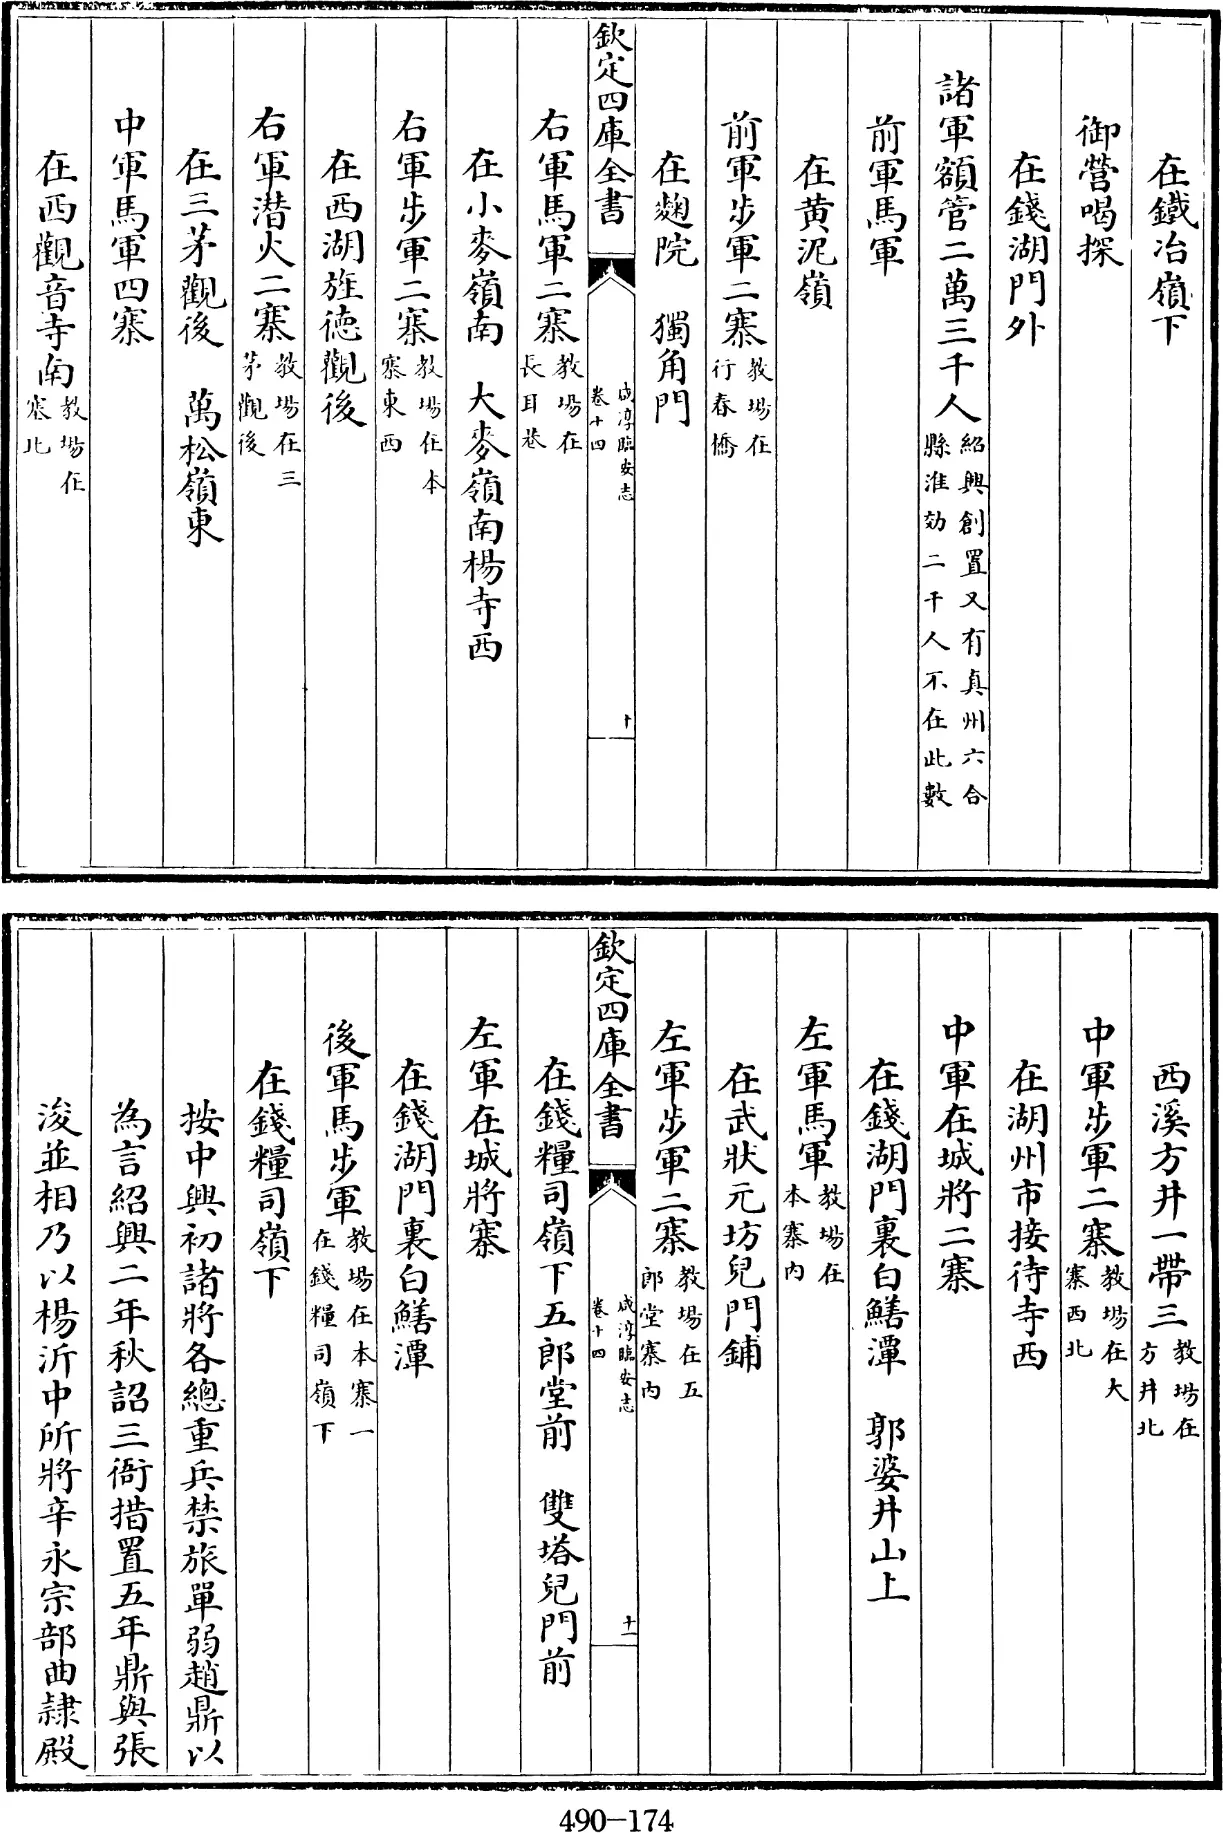 在鐵冶嶺下
御營喝探
在錢湖門外
諸軍額管二萬三千人紹興創置又有真州六合縣淮効二千人不在此數
前軍馬軍
在黄泥嶺
前軍步軍二寨教場在行春橋
在麹院　獨角門
欽定四庫全書　咸淳臨安志卷十四　十
右軍馬軍二寨教場在長耳巷
在小麥嶺南　大麥嶺南楊寺西
右軍步軍二寨教場在本寨東西
在西湖旌德觀後
右軍潜火二寨教場在三茅觀後
在三茅觀後　萬松嶺東
中軍馬軍四寨
在西觀音寺南教場在寨北
西溪方井一帶三教場在方井北
中軍步軍二寨教場在大寨西北
在湖州市接待寺西
中軍在城將二寨
在錢湖門裏白鱔潭　郭婆井山上
左軍馬軍教場在本寨内
在武狀元坊兒門鋪
左軍步軍二寨教場在五郎堂寨内
欽定四庫全書　咸淳臨安志卷十四　十一
在錢糧司嶺下五郎堂前　雙塔兒門前
左軍在城將寨
在錢湖門裏白鱔潭
後軍馬步軍教場在本寨一在錢糧司嶺下
在錢糧司嶺下
按中興初諸將各總重兵禁旅單弱趙鼎以
為言紹興二年秋詔三衙措置五年鼎與張
浚並相乃以楊沂中所將辛永宗部曲隷殿
490-174